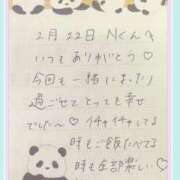 2月22日 Nくん
いつもありがとう♡
今回も一緒にまったり
過ごせてとっても幸せ
でした〜♡ イチャイチャしてる
時もご飯たべてる
時も全部楽しい♡